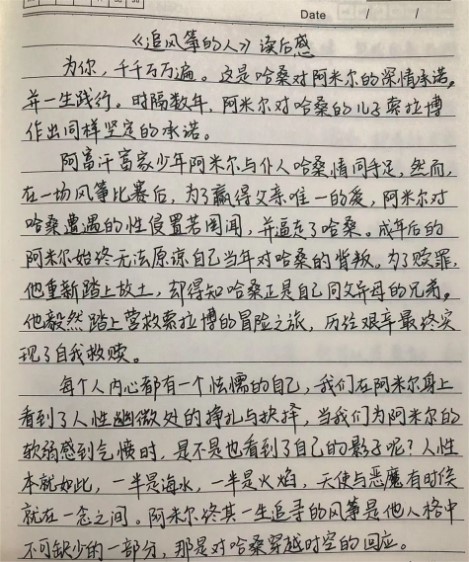 Date / /
《追风筝的人》读后感
为你，千千万万遍。这是哈桑对阿米尔的深情承诺，
并一生践行。时隔数年，阿米尔对哈桑的儿子索拉博
作出同样坚定的承诺。
阿富汗富家少年阿米尔与仆人哈桑情同手足，然而，
在一场风筝比赛后，为了赢得父亲唯一的爱，阿米尔对
哈桑遭遇的性侵置若罔闻，并逼走了哈桑。成年后的
阿米尔始终无法原谅自己当年对哈桑的背叛。为了赎罪，
他重新踏上故土，却得知哈桑正是自己同父异母的兄弟，
他毅然踏上营救索拉博的冒险之旅，历经艰辛最终实
现了自我救赎。
每个人内心都有一个怯懦的自己，我们在阿米尔身上
看到了人性幽微处的挣扎与抉择，当我们为阿米尔的
软弱感到气愤时，是不是也看到了自己的影子呢？人性
本就如此，一半是海水，一半是火焰，天使与恶魔有时候
就在一念之间。阿米尔终其一生追寻的风筝是他人格中
不可缺少的一部分，那是对哈桑穿越时空的回应。